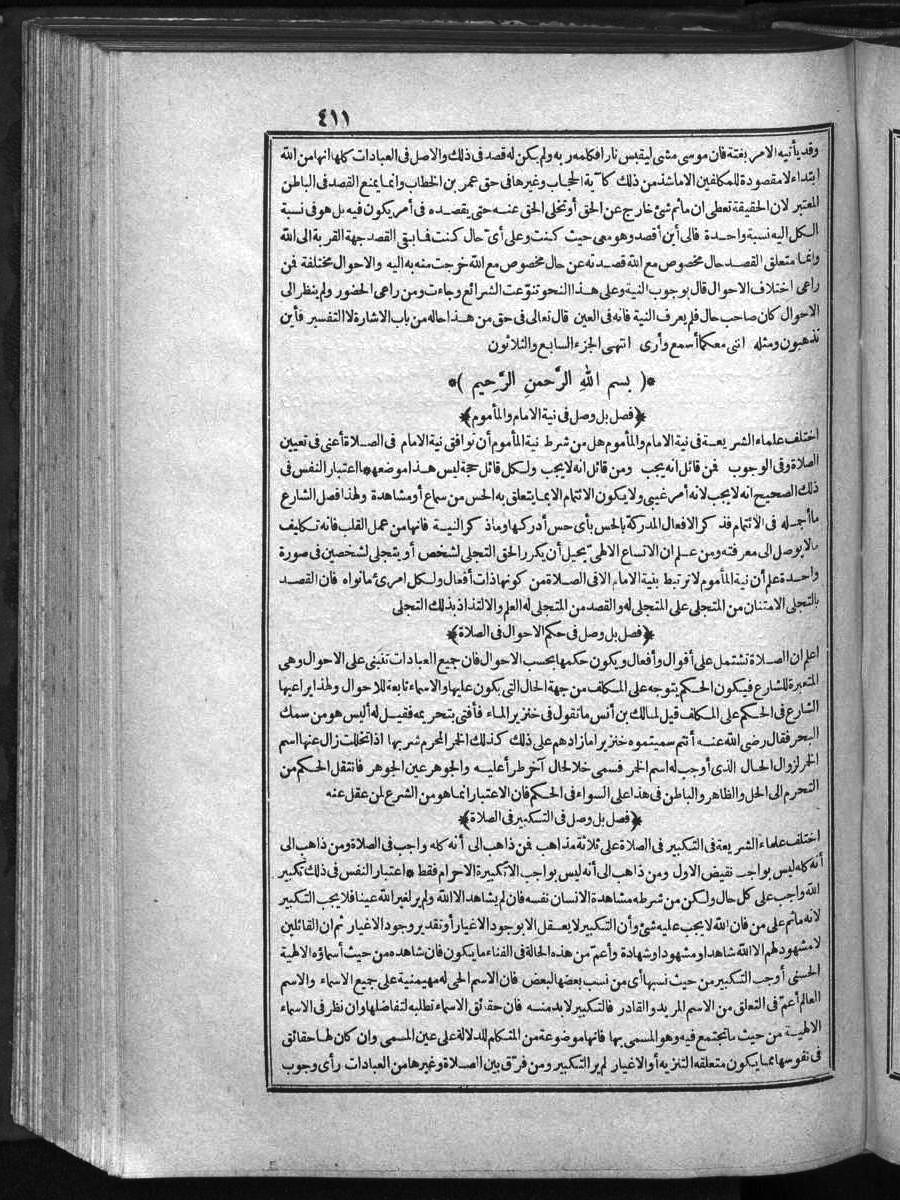 ٤١١
وقد يأتيه الامر بغتة فان موسى مشى ليقبس نارا فكلمه ربه ولم يكن له قصد فى ذلك والاصل فى العبادات كلها انها من الله
ابتداء لا مقصودة للمكلفين الا ما شذ من ذلك كآية الحجاب وغيرها فى حق عمر بن الخطاب وانما يمنع القصد فى الباطن
المعتبر لان الحقيقة تعطى ان ما ثم شئ خارج عن الحق أو تخلى الحق عنه حتى يقصده فى أمر يكون فيه بل هو فى نسبة
الكل اليه نسبة واحدة فالى أين أقصد وهو معى حيث كنت وعلى أى حال كنت فما بقى القصد جهة القربة الى الله
وانما متعلق القصد حال مخصوص مع الله قصدته عن حال مخصوص مع الله خرجت منه به اليه والاحوال مختلفة فمن
راعى اختلاف الاحوال قال بوجوب النية وعلى هذا النحو تنوّعت الشرائع وجاءت ومن راعى الحضور ولم ينظر الى
الاحوال كان صاحب حال فلم يعرف النية فانه فى العين قال تعالى فى حق من هذا حاله من باب الاشارة لا التفسير فأين
تذهبون ومثله اننى معكما أسمع وأرى انتهى الجزء السابع والثلاثون
*( بسم الله الرَّحمنِ الرَّحِيم )*
﴿فصل بل وصل فى نية الامام والمأموم﴾
اختلف علماء الشريعة فى نية الامام والمأموم هل من شرط نية المأموم أن توافق نية الامام فى الصلاة أعنى فى تعيين
الصلاة وفى الوجوب فمن قائل انه يجب ومن قائل انه لا يجب ولكل قائل حجة ليس هذا موضعها * اعتبار النفس فى
ذلك الصحيح انه لا يجب لانه أمر غيبى ولا يكون الائتمام الا بما يتعلق به الحس من سماع أو مشاهدة ولهذا فصل الشارع
ما أجله فى الائتمام فذكر الافعال المدركة بالحس بأى حس أدركها وما ذكر النية فانها من عمل القلب فانه تكليف
ما لا يوصل الى معرفته ومن علم ان الاتساع الالهى يحيل أن يكرر الحق التجلى لشخص أو يتجلى لشخصين فى صورة
واحدة علم أن نية المأموم لا ترتبط بنية الامام الا فى الصلاة من كونها ذات أفعال ولكل امرئ ما نواه فان القصد
بالتجلى الامتنان من المتجلى على المتجلى له والقصد من المتجلى له العلم والالتذاذ بذلك التجلى
﴿فصل بل وصل فى حكم الاحوال فى الصلاة﴾
اعلم ان الصلاة تشتمل على أقوال وأفعال ويكون حكمها بحسب الاحوال فان جميع العبادات تنبنى على الاحوال وهى
المعتبرة للشارع فيكون الحكم يتوجه على المكلف من جهة الحال التى يكون عليها والاسماء تابعة للاحوال ولهذا يراعيها
الشارع فى الحكم على المكلف قيل لمالك بن أنس ما تقول فى خنزير الماء فأفتى بتحريمه فقيل له أليس هو من سمك
البحر فقال رضى الله عنه أنتم سميتموه خنزيرا ما زادهم على ذلك كذلك الخمر المحرم شربها اذا تخللت زال عنها اسم
الخمر لزوال الحال الذى أوجب له اسم الخمر فسمى خلا لحال آخر طرأ عليه والجوهر عين الجوهر فانتقل الحكم من
التحريم الى الحل والظاهر والباطن فى هذا على السواء فى الحكم فان الاعتبار انما هو من الشرع لمن عقل عنه
﴿فصل بل وصل فى التكبير فى الصلاة﴾
اختلف علماء الشريعة فى التكبير فى الصلاة على ثلاثة مذاهب فمن ذاهب الى أنه كله واجب فى الصلاة ومن ذاهب الى
أنه كله ليس بواجب نقيض الاول ومن ذاهب الى أنه ليس بواجب الا تكبيرة الاحرام فقط * اعتبار النفس فى ذلك تكبير
الله واجب على كل حال ولكن من شرطه مشاهدة الانسان نفسه فان لم يشاهد الا الله ولم ير لغير الله عينا فلا يجب التكبير
لانه ما ثم على من فان الله لا يجب عليه شئ وأن التكبير لا يعقل الا بوجود الاغيار أو تقدير وجود الاغيار ثم ان القائلين
لا مشهود لهم الا الله شاهدا ومشهودا وشهادة وأعمّ من هذه الحالة فى الفناء ما يكون فان شاهده من حيث أسماؤه الالهية
الحسنى أوجب التكبير من حيث نسبها أى من نسب بعضها البعض فان الاسم الحى له مهيمنية على جميع الاسماء والاسم
العالم أعمّ فى التعلق من الاسم المريد والقادر فالتكبير لا بد منه فان حقائق الاسماء تطلبه لتفاضلها وان نظر فى الاسماء
الالهية من حيث ما تجتمع فيه وهو المسمى بها فانها موضوعة من المتكلم للدلالة على عين المسمى وان كان لها حقائق
فى نفوسها مما يكون متعلقه التنزيه أو الاغيار لم ير التكبير ومن فرّق بين الصلاة وغيرها من العبادات رأى وجوب